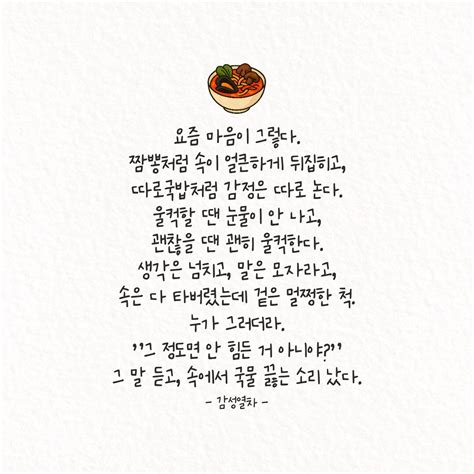 요즘 마음이 그렇다.
짬뽕처럼 속이 얼큰하게 뒤집히고,
따로국밥처럼 감정은 따로 논다.
울컥할 땐 눈물이 안 나고,
괜찮을 땐 괜히 울컥한다.
생각은 넘치고, 말은 모자라고,
속은 다 타버렸는데 겉은 멀쩡한 척.
누가 그러더라.
"그 정도면 안 힘든 거 아니야?"
그 말 듣고, 속에서 국물 끓는 소리 났다.
- 감성열차 -